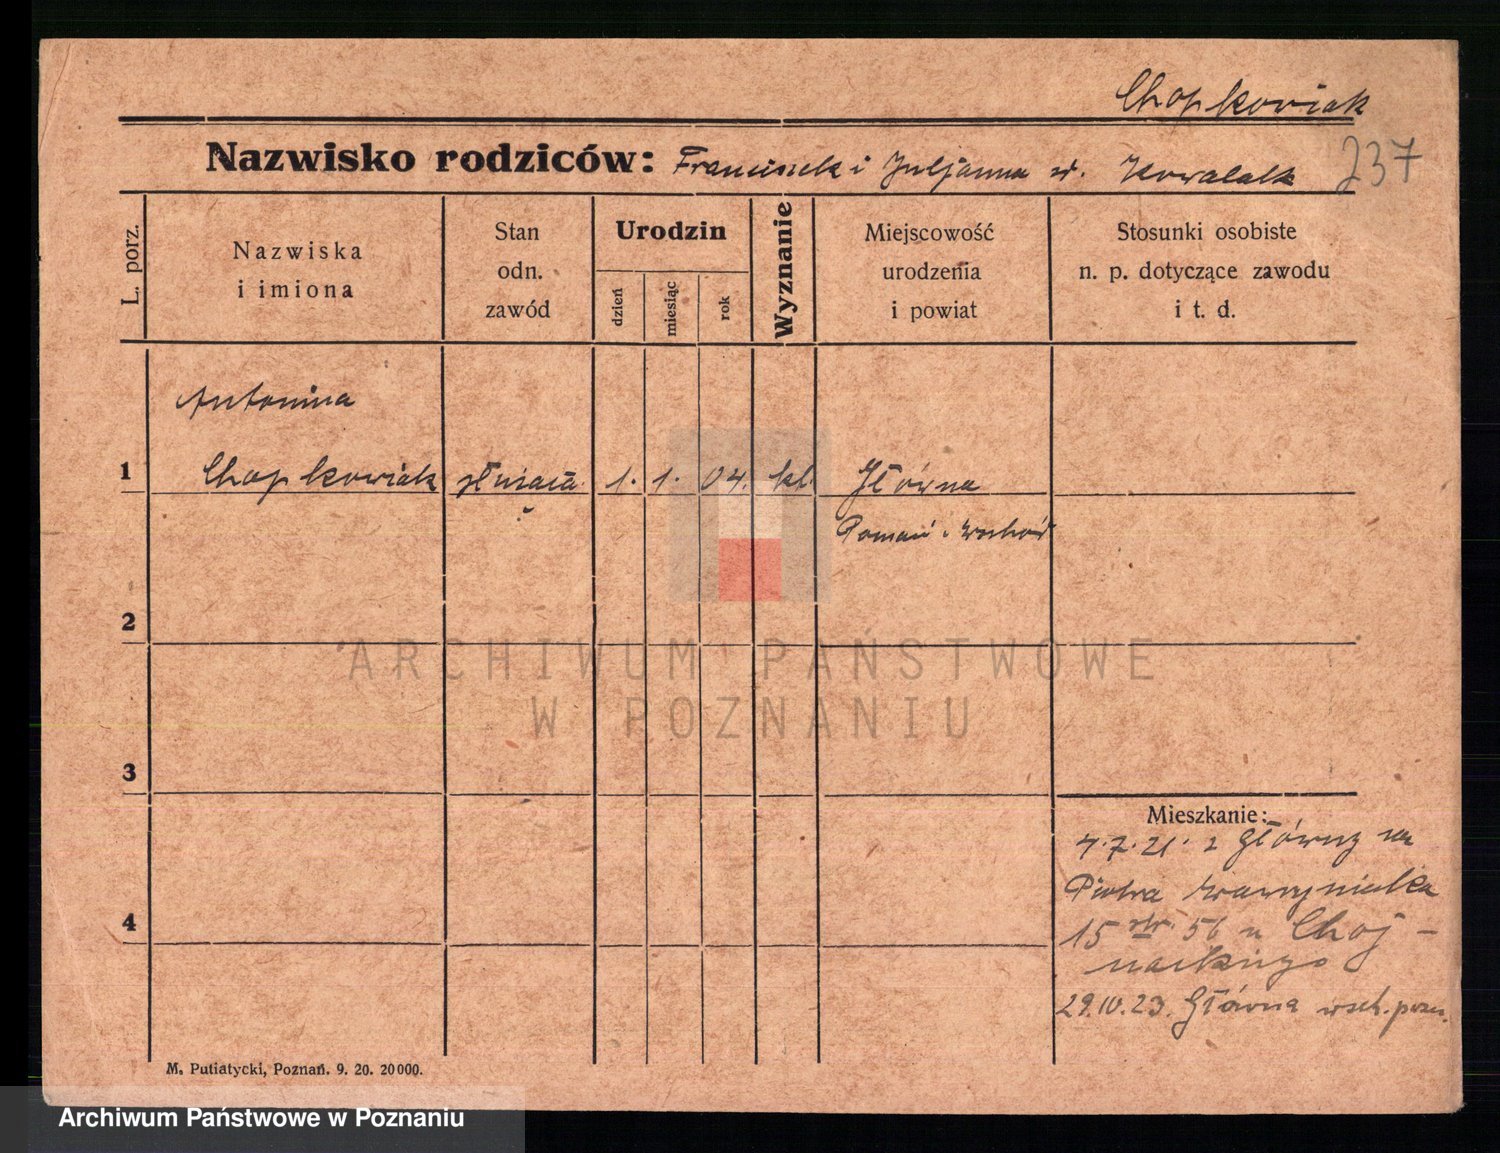 Chopkowiak
Nazwisko rodziców: Franciszek i Juljanna z. Kowalak
237
L. porz.
Nazwiska
i imiona
Stan
odn.
zawód
Urodzin
dzień
miesiąc
rok
Wyznanie
Miejscowość
urodzenia
i powiat
Stosunki osobiste
n. p. dotyczące zawodu
i t. d.
Antonina
1 Chopkowiak służąca 1. 1. 04. kt. Główna
Poznań - Wschód
2
ARCHIWUM PAŃSTWOWE
W POZNANIU
3
Mieszkanie:
4.7.21. z Główny na
Piotra Wawrzyniaka
4
15 56 u Choj-
nackiego
29.IV.23. Główna wsch. pozn.
M. Putiatycki, Poznań. 9. 20. 20000.
Archiwum Państwowe w Poznaniu